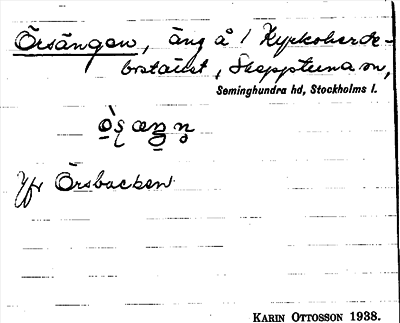 Örsängen, äng å / Kyrkoherde-
bostället, Skepptuna sn,
Seminghundra hd, Stockholms l.
Jfr Örsbacken
KARIN OTTOSSON 1938.